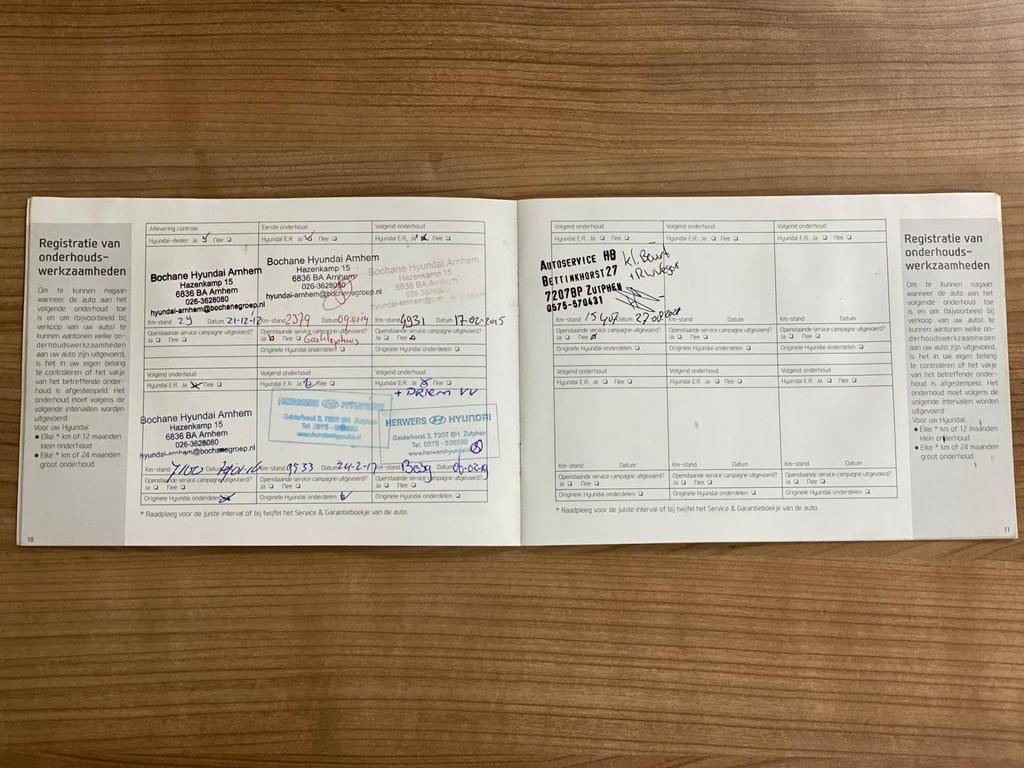 Registratie van
onderhouds-
werkzaamheden
Om te kunnen nagaan
wanneer de auto aan het
volgende onderhoud toe
is en om (bijvoorbeeld bij
verkoop van uw auto) te
kunnen aantonen welke on-
derhoudswerkzaamheden
aan uw auto zijn uitgevoerd,
is het in uw eigen belang
te controleren of het vakje
van het betreffende onder-
houd is afgestempeld. Het
onderhoud moet volgens de
volgende intervallen worden
uitgevoerd
Voor uw Hyundai
● Elke * km of 12 maanden
klein onderhoud
● Elke * km of 24 maanden
groot onderhoud
10
Aflevering controle
Hyundai-dealer: Ja Nee
Bochane Hyundai Arnhem
Hazenkamp 15
6836 BA Arnhem
026-3628080
hyundai-arnhem@bochanegroep.nl
Km-stand 29 Datum 21-12-12
Openstaande service campagne uitgevoerd?
Ja Nee
Eerste onderhoud
Hyundai E.R. Ja Nee
Bochane Hyundai Arnhem
Hazenkamp 15
6836 BA Arnhem
026-3628080
hyundai-arnhem@bochanegroep.nl
Km-stand 2379 Datum
Openstaande service campagne uitgevoerd?
Ja Nee
Originele Hyundai onderdelen
Volgend onderhoud
Hyundai E.R. Ja Nee
Bochane Hyundai Arnhem
Hazenkamp 15
6836 BA Arnhem
026-3628080
hyundai-arnhem@bochanegroep.nl
Km-stand 4931 Datum 17-02-2015
Openstaande service campagne uitgevoerd?
Ja Nee
Originele Hyundai onderdelen
Volgend onderhoud
Hyundai E.R. Ja Nee
Bochane Hyundai Arnhem
Hazenkamp 15
6836 BA Arnhem
026-3628080
hyundai-arnhem@bochanegroep.nl
Km-stand 7100 Datum
Openstaande service campagne uitgevoerd?
Ja Nee
Originele Hyundai onderdelen
Volgend onderhoud
Hyundai E.R. Ja Nee
HERWERS HYUNDAI
Gelderhorst 2, 7207 BH Zutphen
Km-stand 9533 Datum 24-2-17
Openstaande service campagne uitgevoerd?
Ja Nee
Originele Hyundai onderdelen
Volgend onderhoud
Hyundai E.R. Ja Nee
+ VV
HERWERS HYUNDAI
Gelderhorst 2, 7207 BH Zutphen
Tel. 0575 - 526590
www.herwershyundai.nl
Km-stand Datum
Openstaande service campagne uitgevoerd?
Ja Nee
Originele Hyundai onderdelen
* Raadpleeg voor de juiste interval of bij twijfel het Service & Garantieboekje van de auto.
Volgend onderhoud
Hyundai E.R. Ja Nee
AUTOSERVICE HB
BETTINKHORST 27
7207BP ZUTPHEN
0575-570431
Kl. Beurt
Km-stand Datum
Openstaande service campagne uitgevoerd?
Ja Nee
Originele Hyundai onderdelen
Volgend onderhoud
Hyundai E.R. Ja Nee
Km-stand Datum
Openstaande service campagne uitgevoerd?
Ja Nee
Originele Hyundai onderdelen
Volgend onderhoud
Hyundai E.R. Ja Nee
Km-stand Datum
Openstaande service campagne uitgevoerd?
Ja Nee
Originele Hyundai onderdelen
Volgend onderhoud
Hyundai E.R. Ja Nee
Km-stand Datum
Openstaande service campagne uitgevoerd?
Ja Nee
Originele Hyundai onderdelen
Volgend onderhoud
Hyundai E.R. Ja Nee
Km-stand Datum
Openstaande service campagne uitgevoerd?
Ja Nee
Originele Hyundai onderdelen
Volgend onderhoud
Hyundai E.R. Ja Nee
Km-stand Datum
Openstaande service campagne uitgevoerd?
Ja Nee
Originele Hyundai onderdelen
* Raadpleeg voor de juiste interval of bij twijfel het Service & Garantieboekje van de auto.
Registratie van
onderhouds-
werkzaamheden
Om te kunnen nagaan
wanneer de auto aan het
volgende onderhoud toe
is en om (bijvoorbeeld bij
verkoop van uw auto) te
kunnen aantonen welke on-
derhoudswerkzaamheden
aan uw auto zijn uitgevoerd,
is het in uw eigen belang
te controleren of het vakje
van het betreffende onder-
houd is afgestempeld. Het
onderhoud moet volgens de
volgende intervallen worden
uitgevoerd
Voor uw Hyundai
● Elke * km of 12 maanden
klein onderhoud
● Elke * km of 24 maanden
groot onderhoud
11